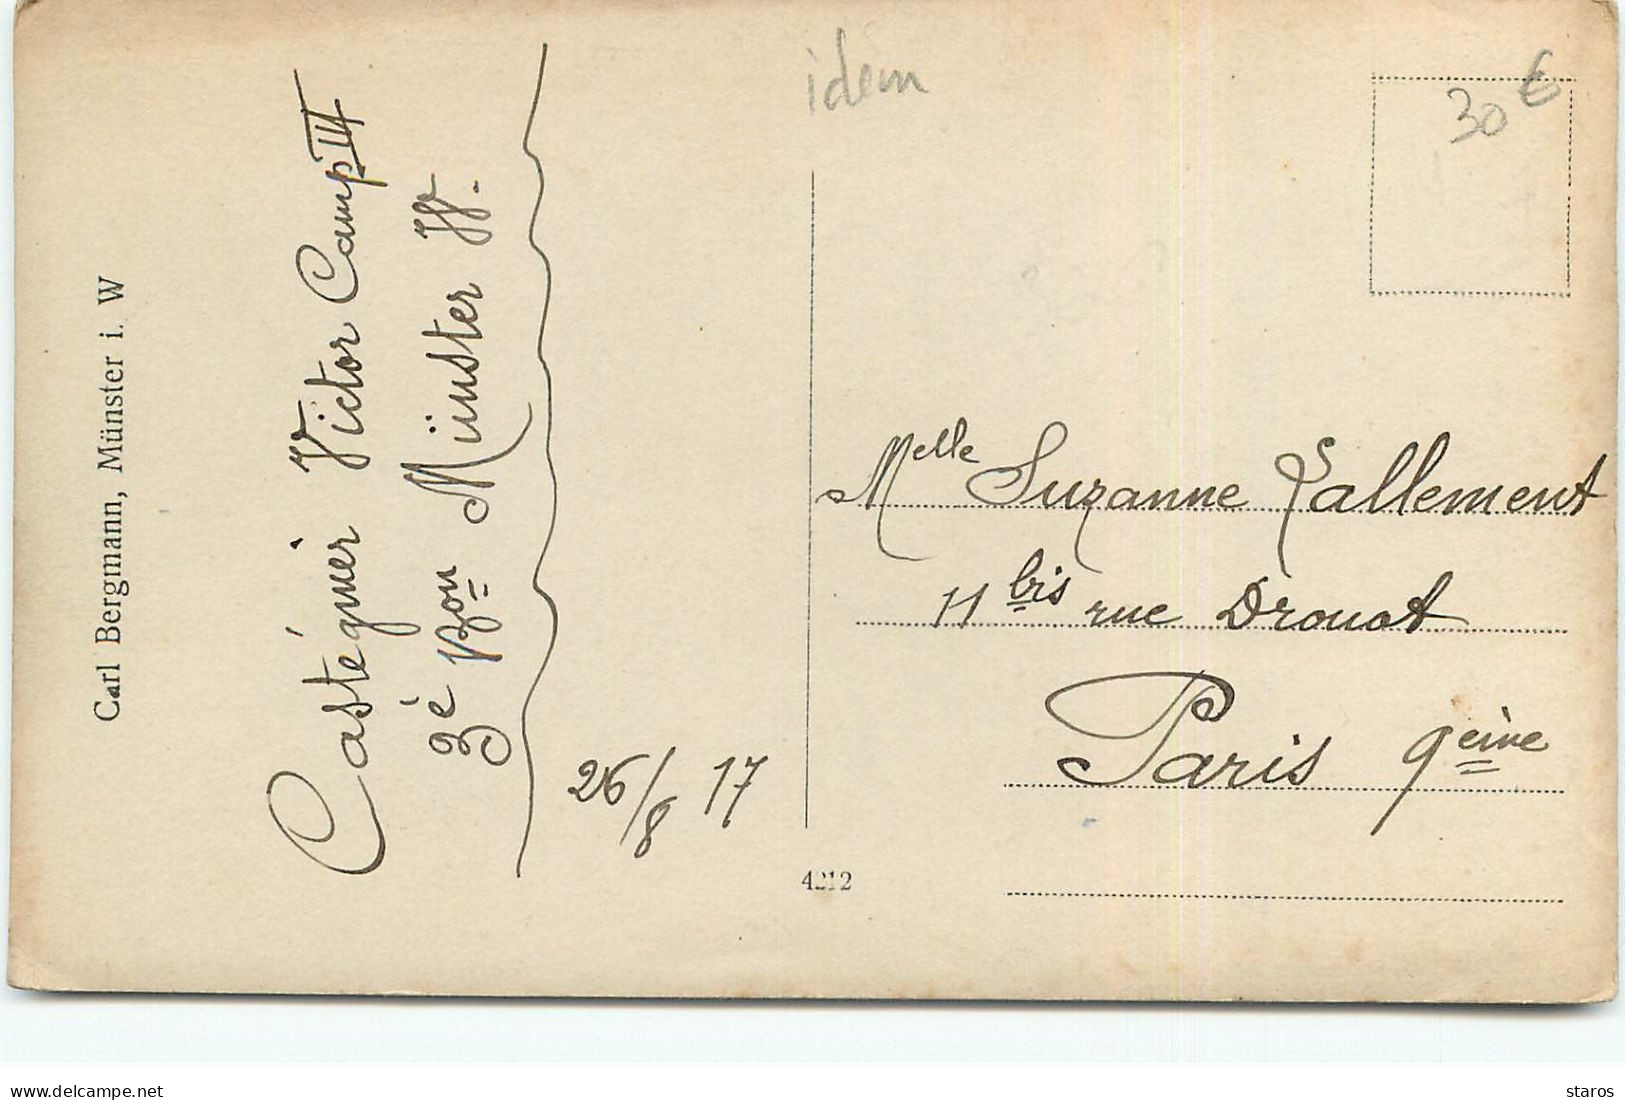 idem
30 €
Carl Bergmann, Münster i. W
Castégnier Victor Camp III
3è Bon Münster W.
26/8 17
Melle Suzanne Lallement
11 bis rue Drouot
Paris 9eine
4212
www.delcampe.net
staros